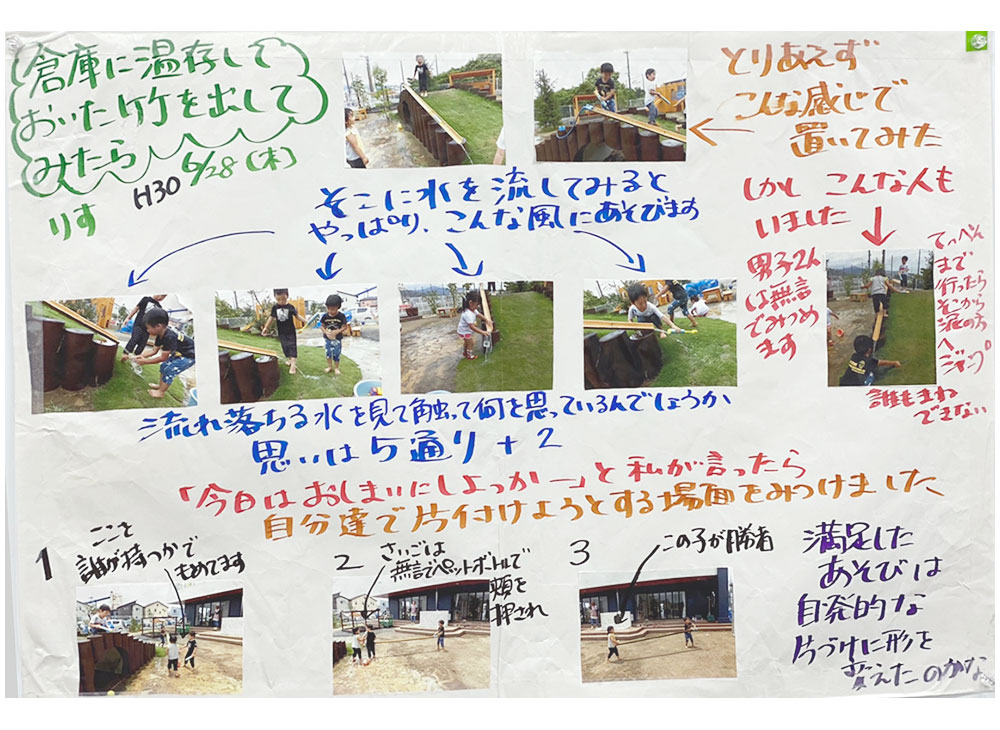 倉庫に温存して
おいた竹を出して
みたら
H30 6/28(木)
りす
とりあえず
こんな感じで
置いてみた
そこに水を流してみると
やっぱり、こんな風にあそびます
しかし こんな人も
いました
男子2人
は無言
でみつめ
ます
てっぺん
まで
行ったら
そこから
泥の方
へ
ジャンプ
誰もまね
できない
流れ落ちる水を見て触って何を思っているんでしょうか
思いは5通り+2
「今日はおしまいにしよっかー」と私が言ったら
自分達で片付けようとする場面をみつけました
1
ここを
誰が持つかで
もめてます
2
さいごは
無言でペットボトルで
頬を
押され
3
この子が勝者
満足した
あそびは
自発的な
片づけに形を
変えたのかな